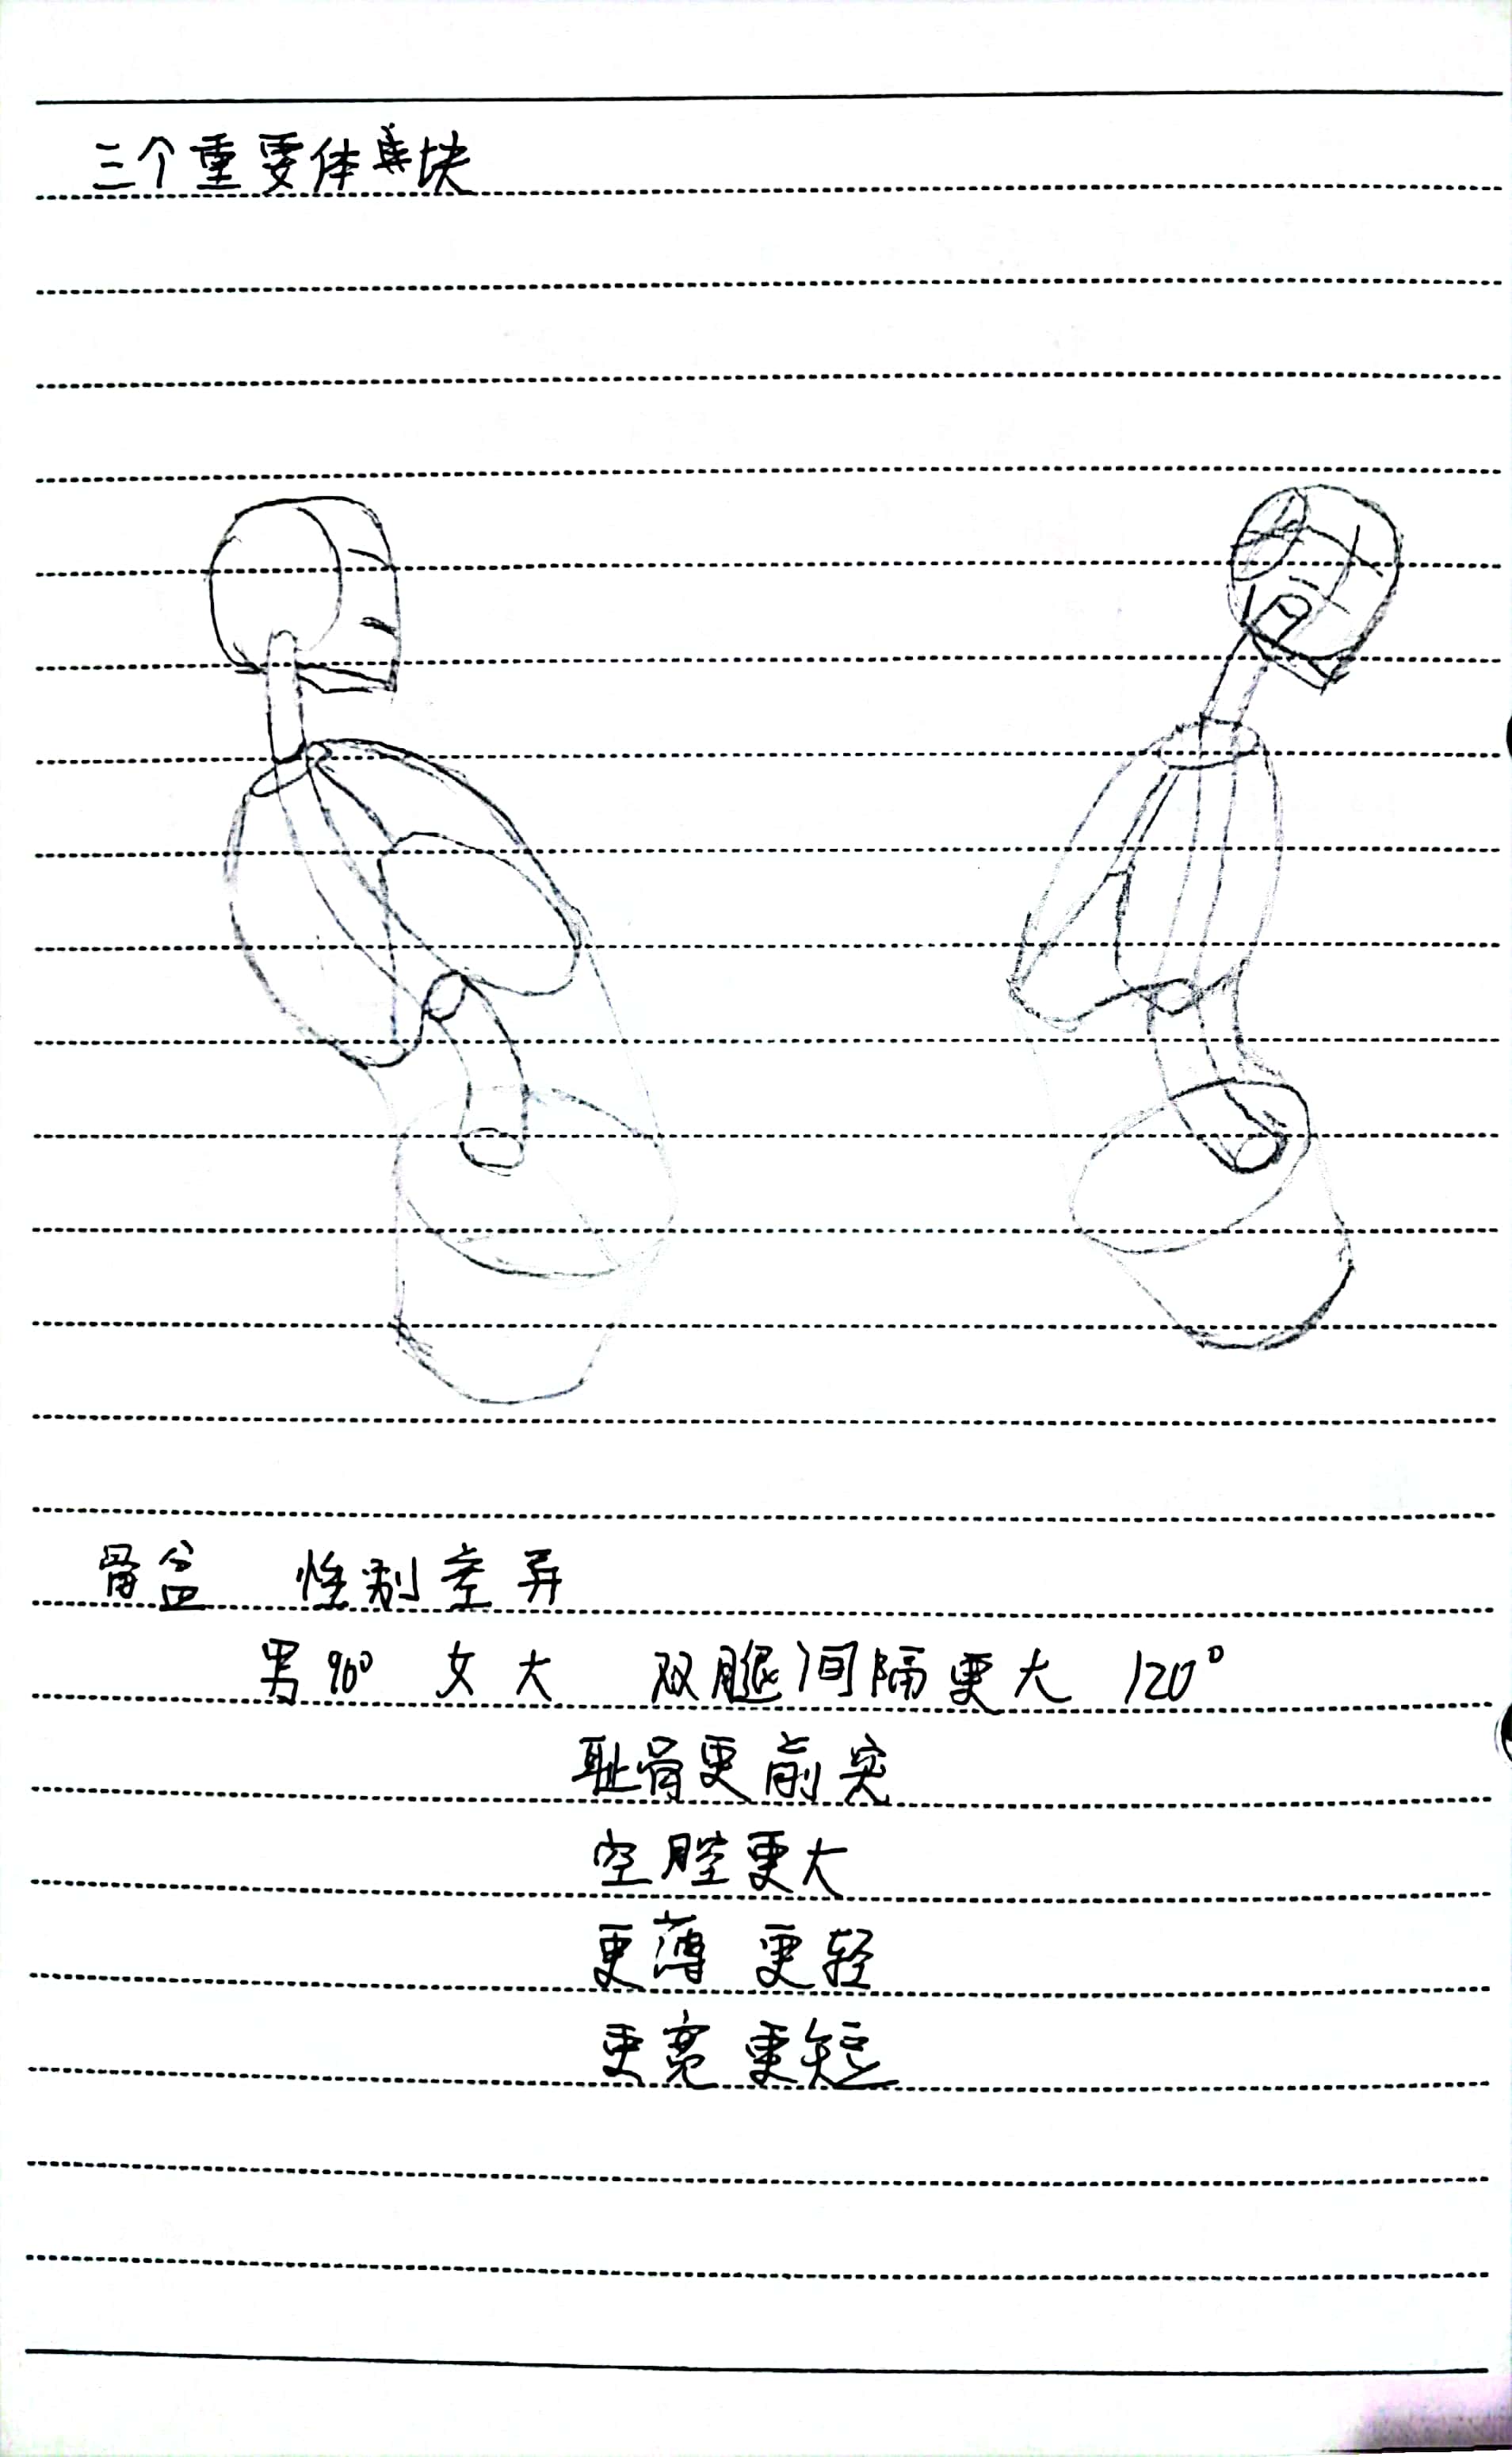 三个重要体块
骨盆 性别差异
男90° 女大 双腿间隔更大 120°
耻骨更前突
空腔更大
更薄 更轻
更宽 更短